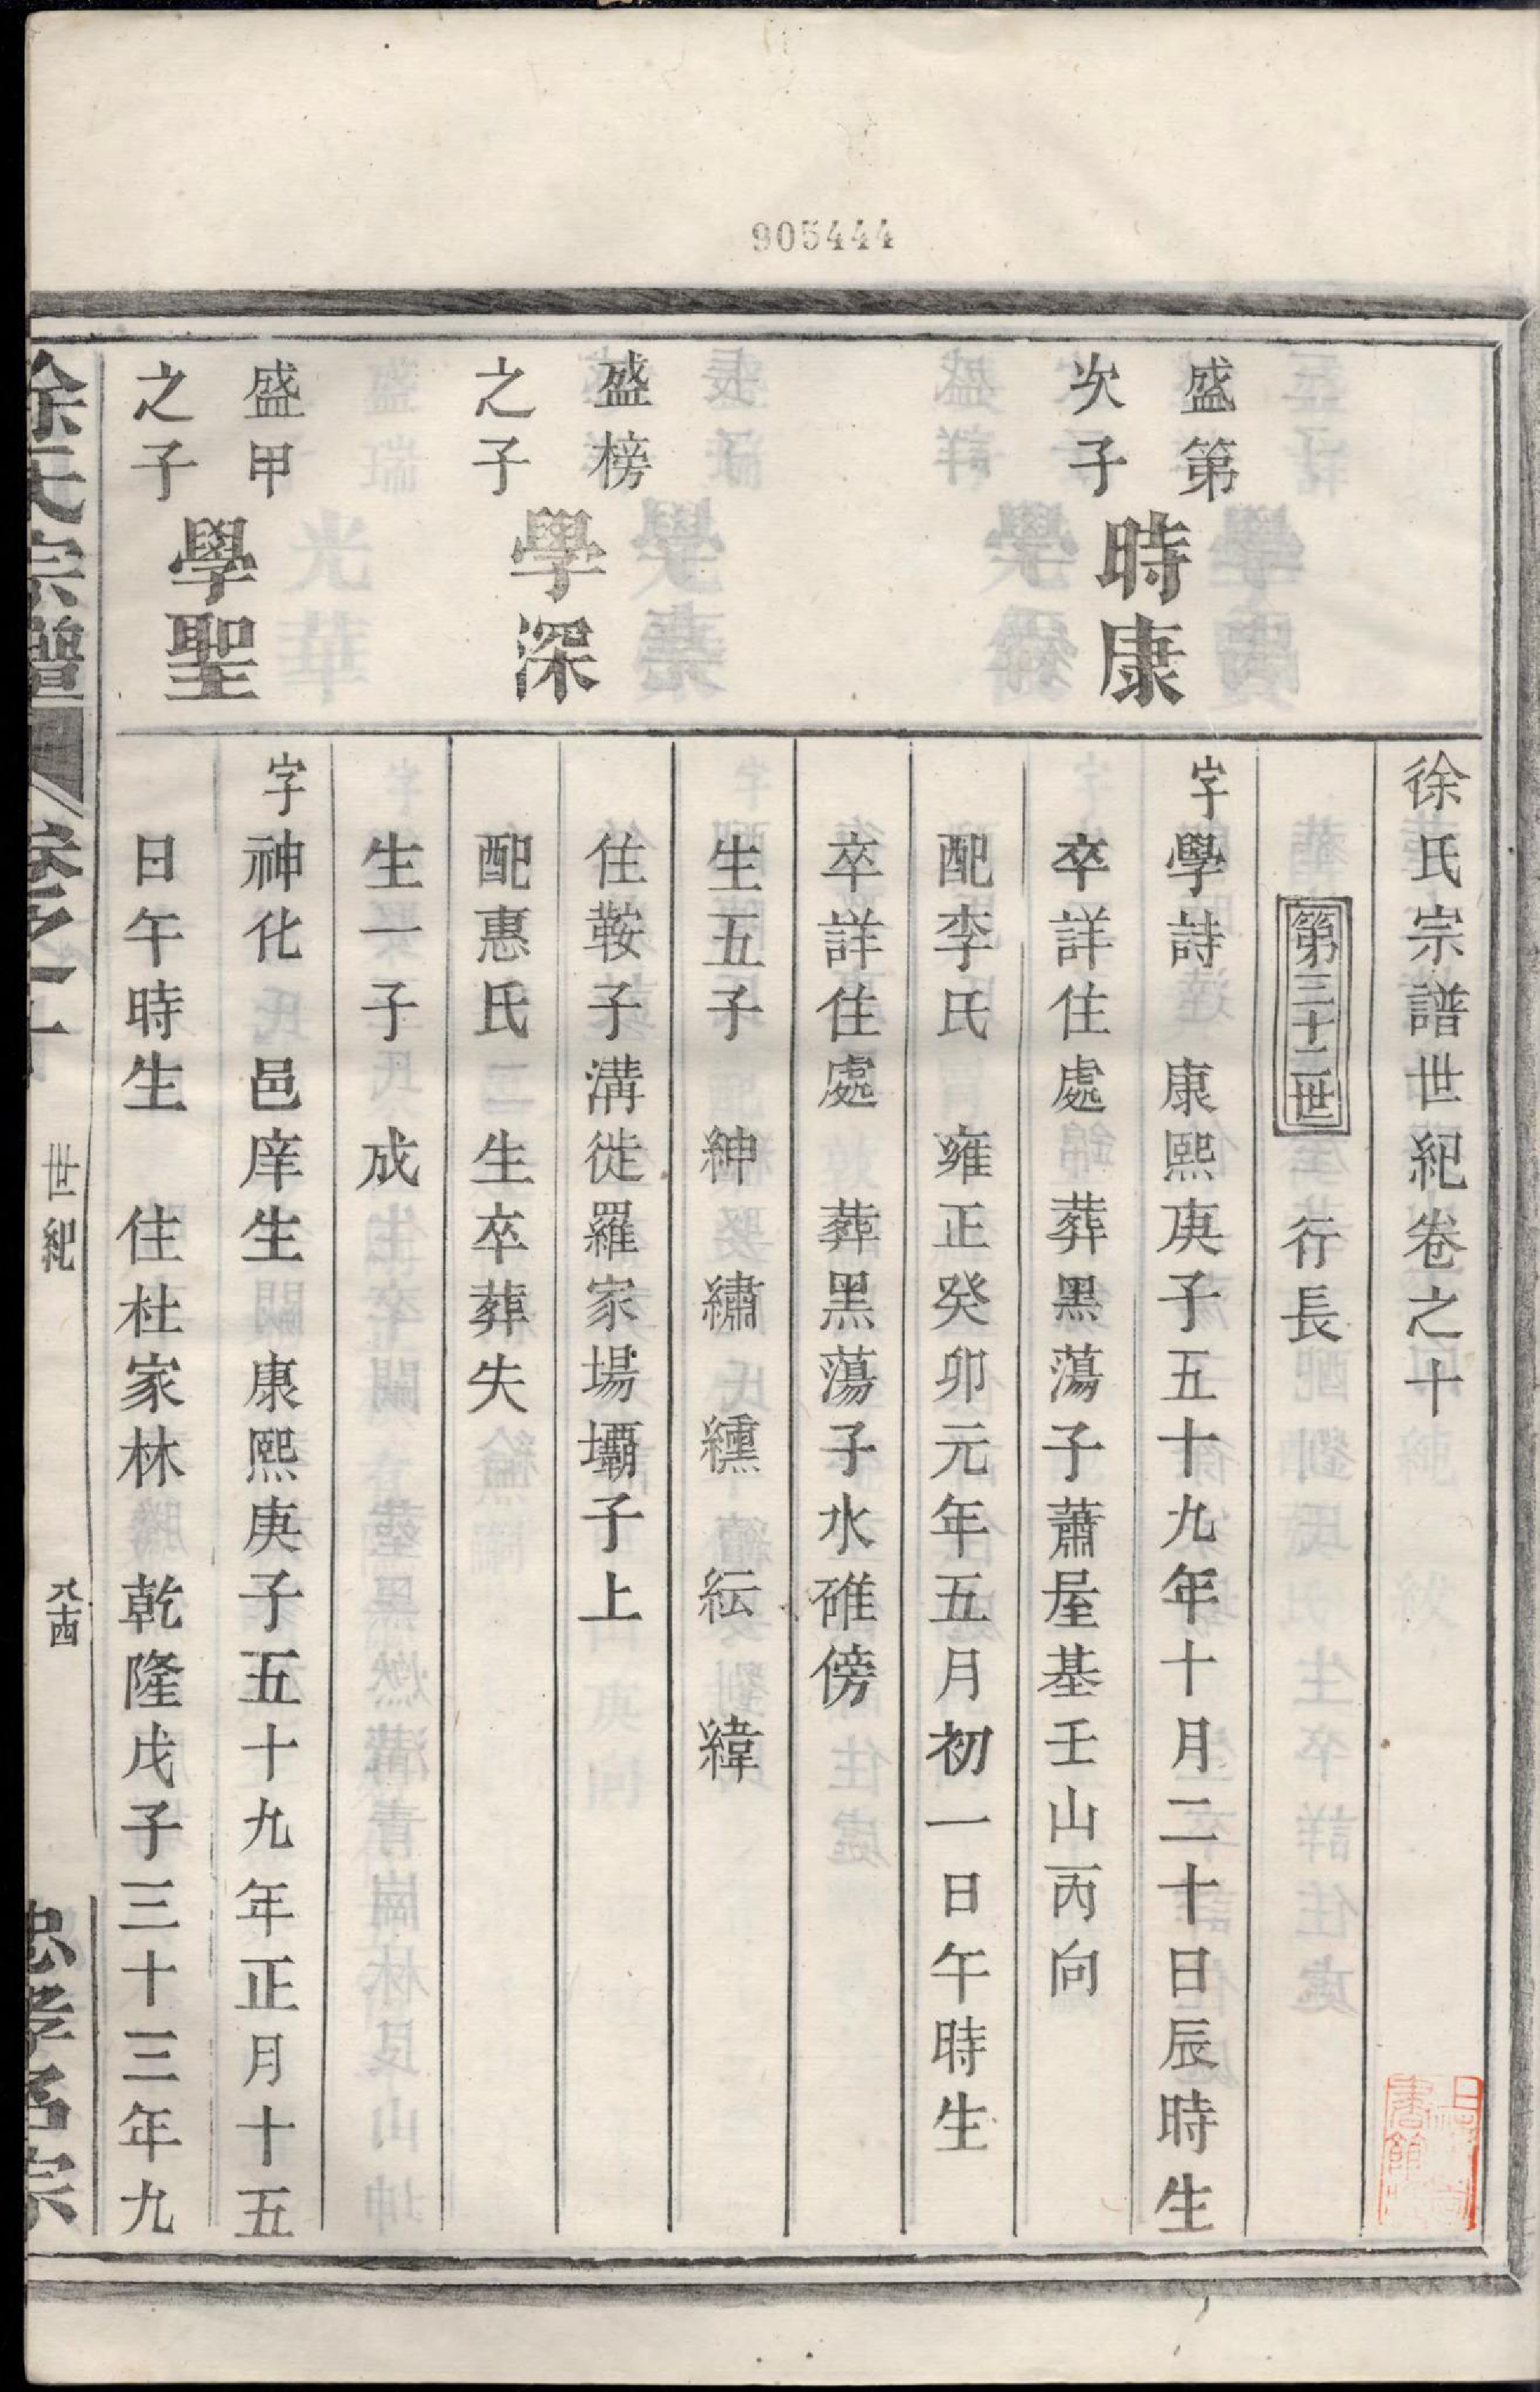 905444
徐氏宗譜世紀卷之十
第三十二世 行長
盛第
次子
時康
字學詩 康熙庚子五十九年十月二十日辰時生
卒詳住處 葬黑蕩子蕭屋基壬山丙向
配李氏 雍正癸卯元年五月初一日午時生
卒詳住處 葬黑蕩子水碓傍
生五子 紳 繡 纁 紜 緯
盛榜
之子
學深
住鞍子溝徙羅家場壩子上
配惠氏 生卒葬失
生一子 成
盛甲
之子
學聖
字神化 邑庠生 康熙庚子五十九年正月十五
日午時生 住杜家林 乾隆戊子三十三年九
徐氏宗譜 卷之十 世紀 忠孝名宗